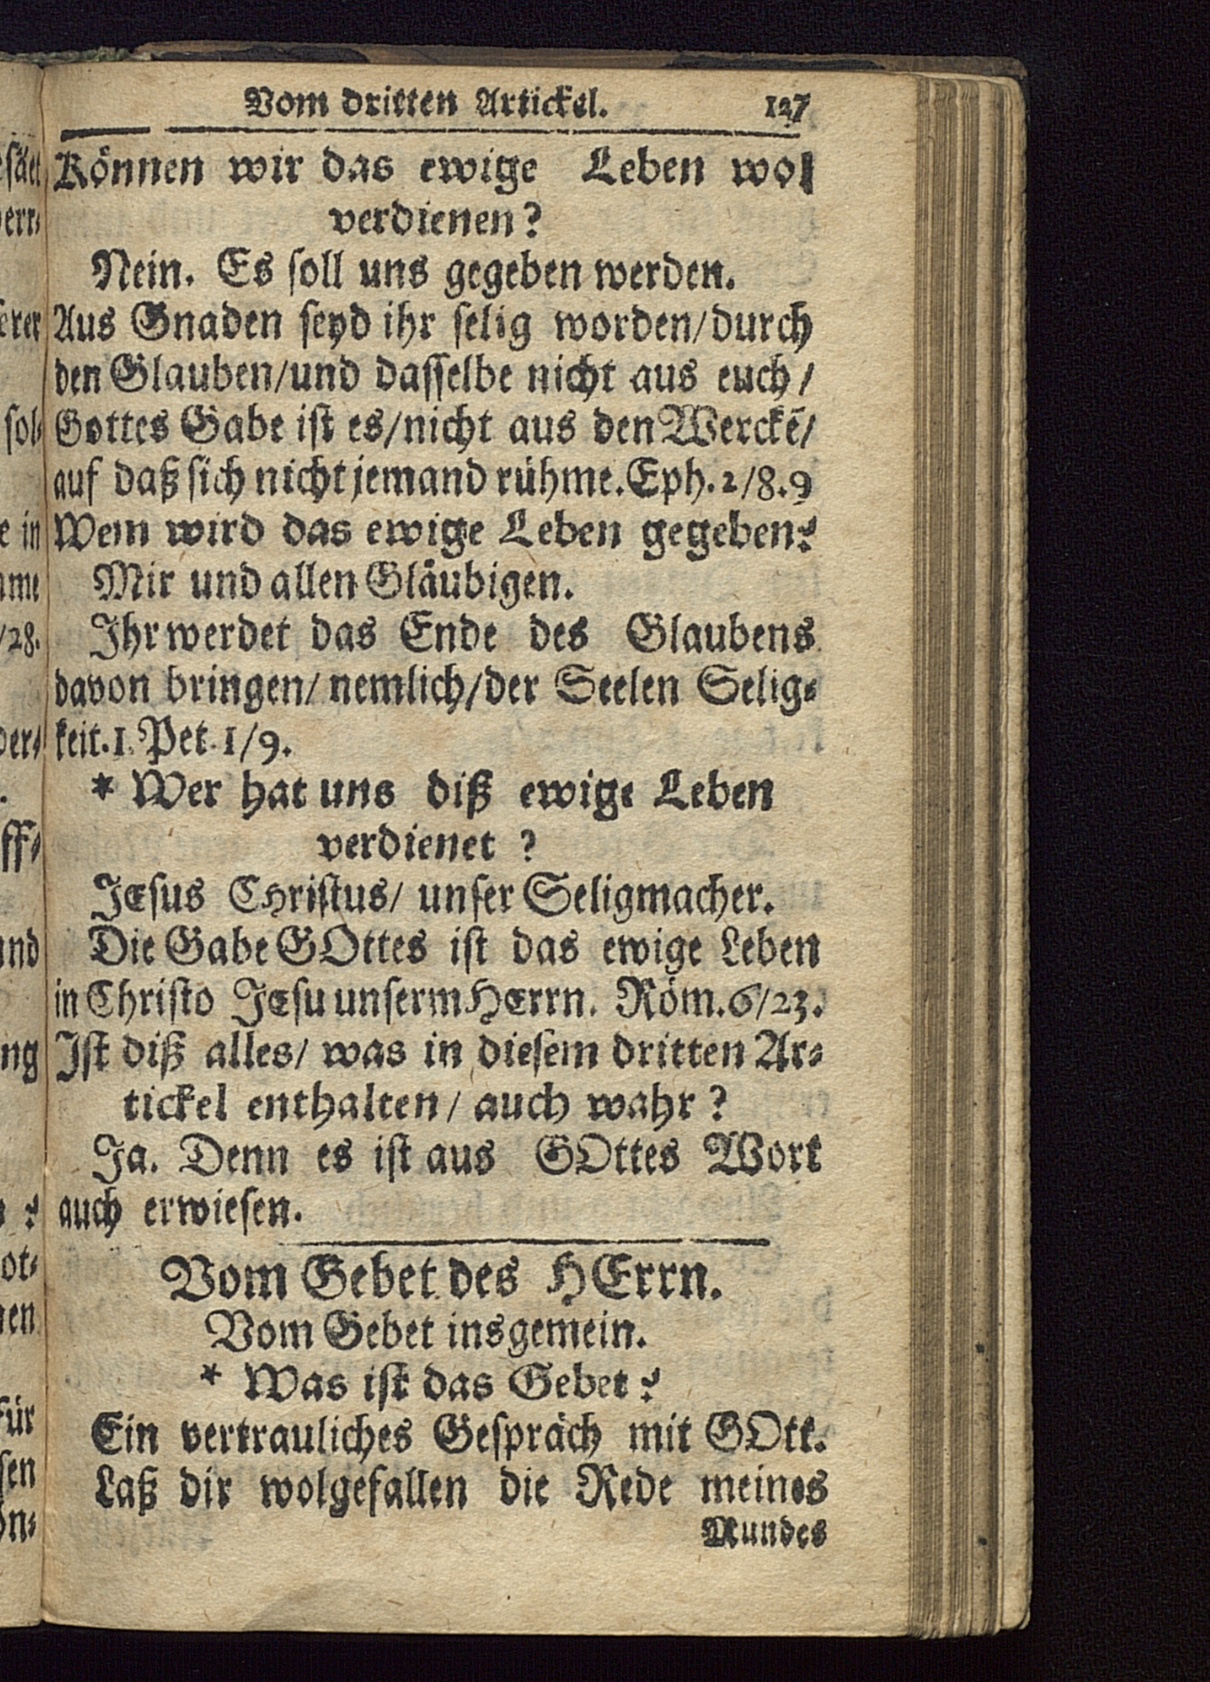 Vom dritten Artickel. 127
Können wir das ewige Leben wol
verdienen?
Nein. Es soll uns gegeben werden.
Aus Gnaden seyd ihr selig worden/durch
den Glauben/und dasselbe nicht aus euch/
Gottes Gabe ist es/nicht aus den Werckẽ/
auf daß sich nicht jemand rühme. Eph. 2/8.9
Wem wird das ewige Leben gegeben?
Mir und allen Gläubigen.
Ihr werdet das Ende des Glaubens
davon bringen/ nemlich/der Seelen Selig-
keit. 1. Pet. 1/9.
* Wer hat uns diß ewige Leben
verdienet ?
JEsus CHristus/ unser Seligmacher.
Die Gabe GOttes ist das ewige Leben
in Christo JEsu unserm HErrn. Röm. 6/23.
Ist diß alles/ was in diesem dritten Ar-
tickel enthalten/ auch wahr ?
Ja. Denn es ist aus GOttes Wort
auch erwiesen.
Vom Gebet des HErrn.
Vom Gebet insgemein.
* Was ist das Gebet?
Ein vertrauliches Gespräch mit GOtt.
Laß dir wolgefallen die Rede meines
Mundes